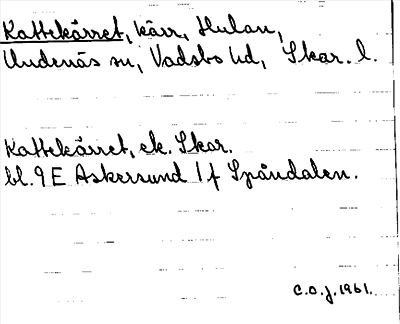 Kattekärret, kärr, Hulan,
Undenäs sn, Vadsbo hd, Skar. l.
Kattekärret, ek. Skar.
bl. 9 E Askersund 1 f Spåndalen.
C.O.J. 1961.